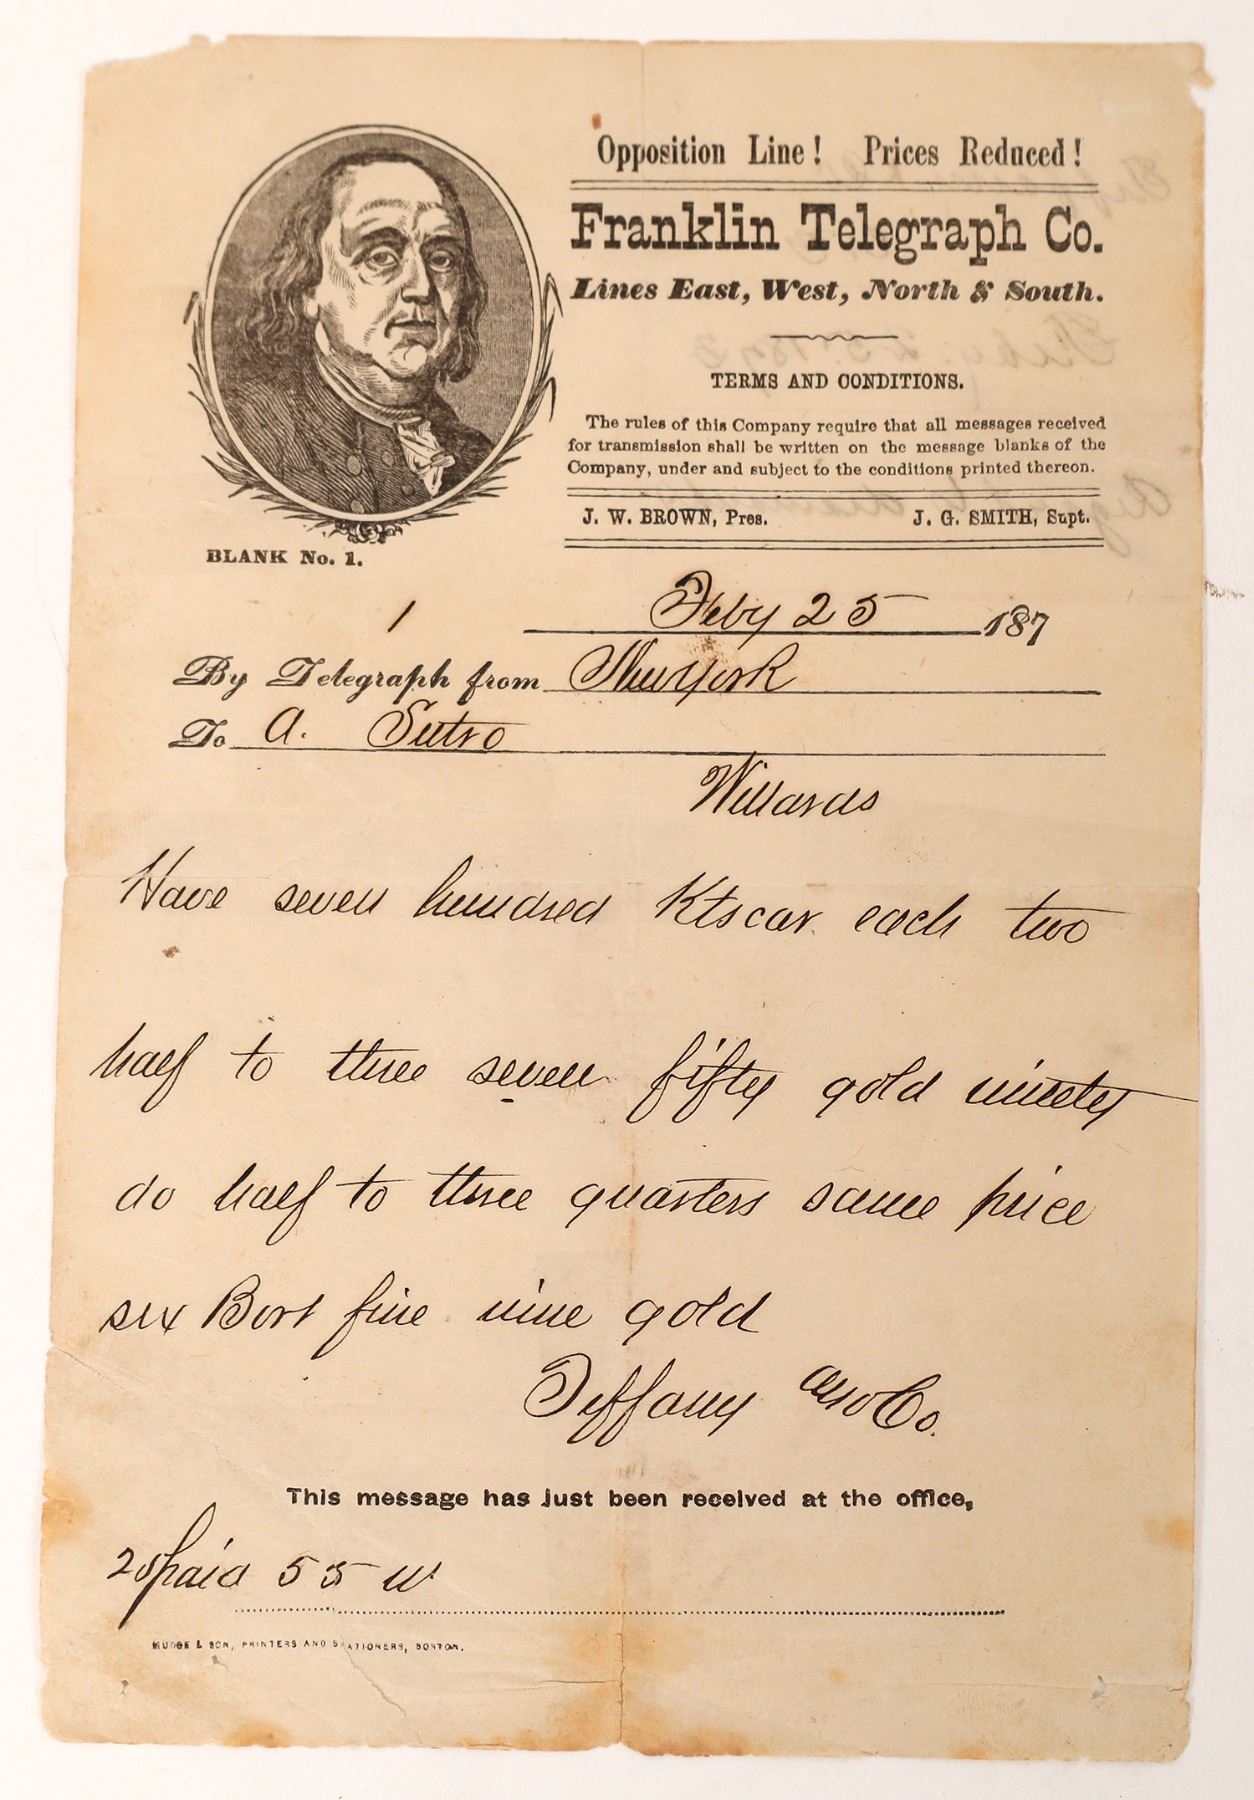 Opposition Line! Prices Reduced!
Franklin Telegraph Co.
Lines East, West, North & South.
TERMS AND CONDITIONS.
The rules of this Company require that all messages received
for transmission shall be written on the message blanks of the
Company, under and subject to the conditions printed thereon.
J. W. BROWN, Pres. J. G. SMITH, Supt.
BLANK No. 1.
1
Feby 25 187
By Telegraph from New York
To A. Sutro
Willards
Have seven hundred Ktscar each two
half to three seven fifty gold ninety
do half to three quarters same price
six Bort fine nine gold
Tiffany and Co.
This message has just been received at the office,
paid 55 W
MUDGE & SON, PRINTERS AND STATIONERS, BOSTON.